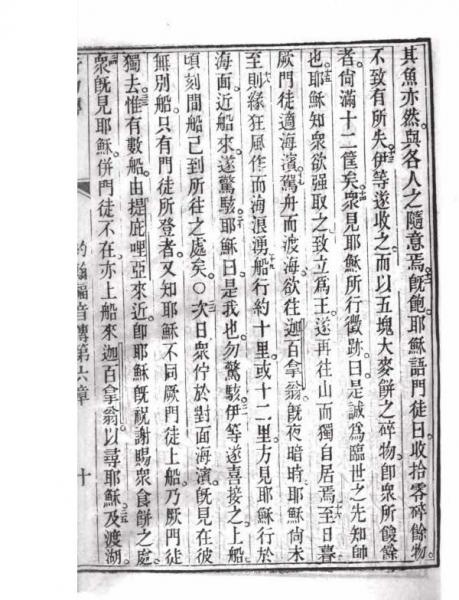 其魚亦然與各人之隨意焉。旣飽。耶穌語門徒曰收拾零碎餘物。
不致有所失。伊等遂收之。而以五塊大麥餅之碎物。卽衆所餕餘
者。尙滿十二筐矣。衆見耶穌所行徵跡。曰是誠爲臨世之先知師
也。耶穌知衆欲强取之致立爲王。遂再往山而獨自居焉。至日暮
厥門徒適海濱。駕舟而渡海。欲往迦百拿翁旣夜暗時耶穌尙未
至則緣狂風作而洶浪湧。船行約十里或十二里。方見耶穌行於
海面。近船來。遂驚駭。耶穌曰是我也。勿驚駭。伊等遂喜接之上船
頃刻間船已到所往之處矣。○次日衆佇於對面海濱。旣見在彼
無別船。只有門徒所登者。又知耶穌不同厥門徒上船。乃厥門徒
獨去。惟有數船。由提庇哩亞來近。卽耶穌旣祝謝賜衆食餅之處
衆旣見耶穌。併門徒不在。亦上船來迦百拿翁以尋耶穌。及渡湖
約翰福音傳第六章 十